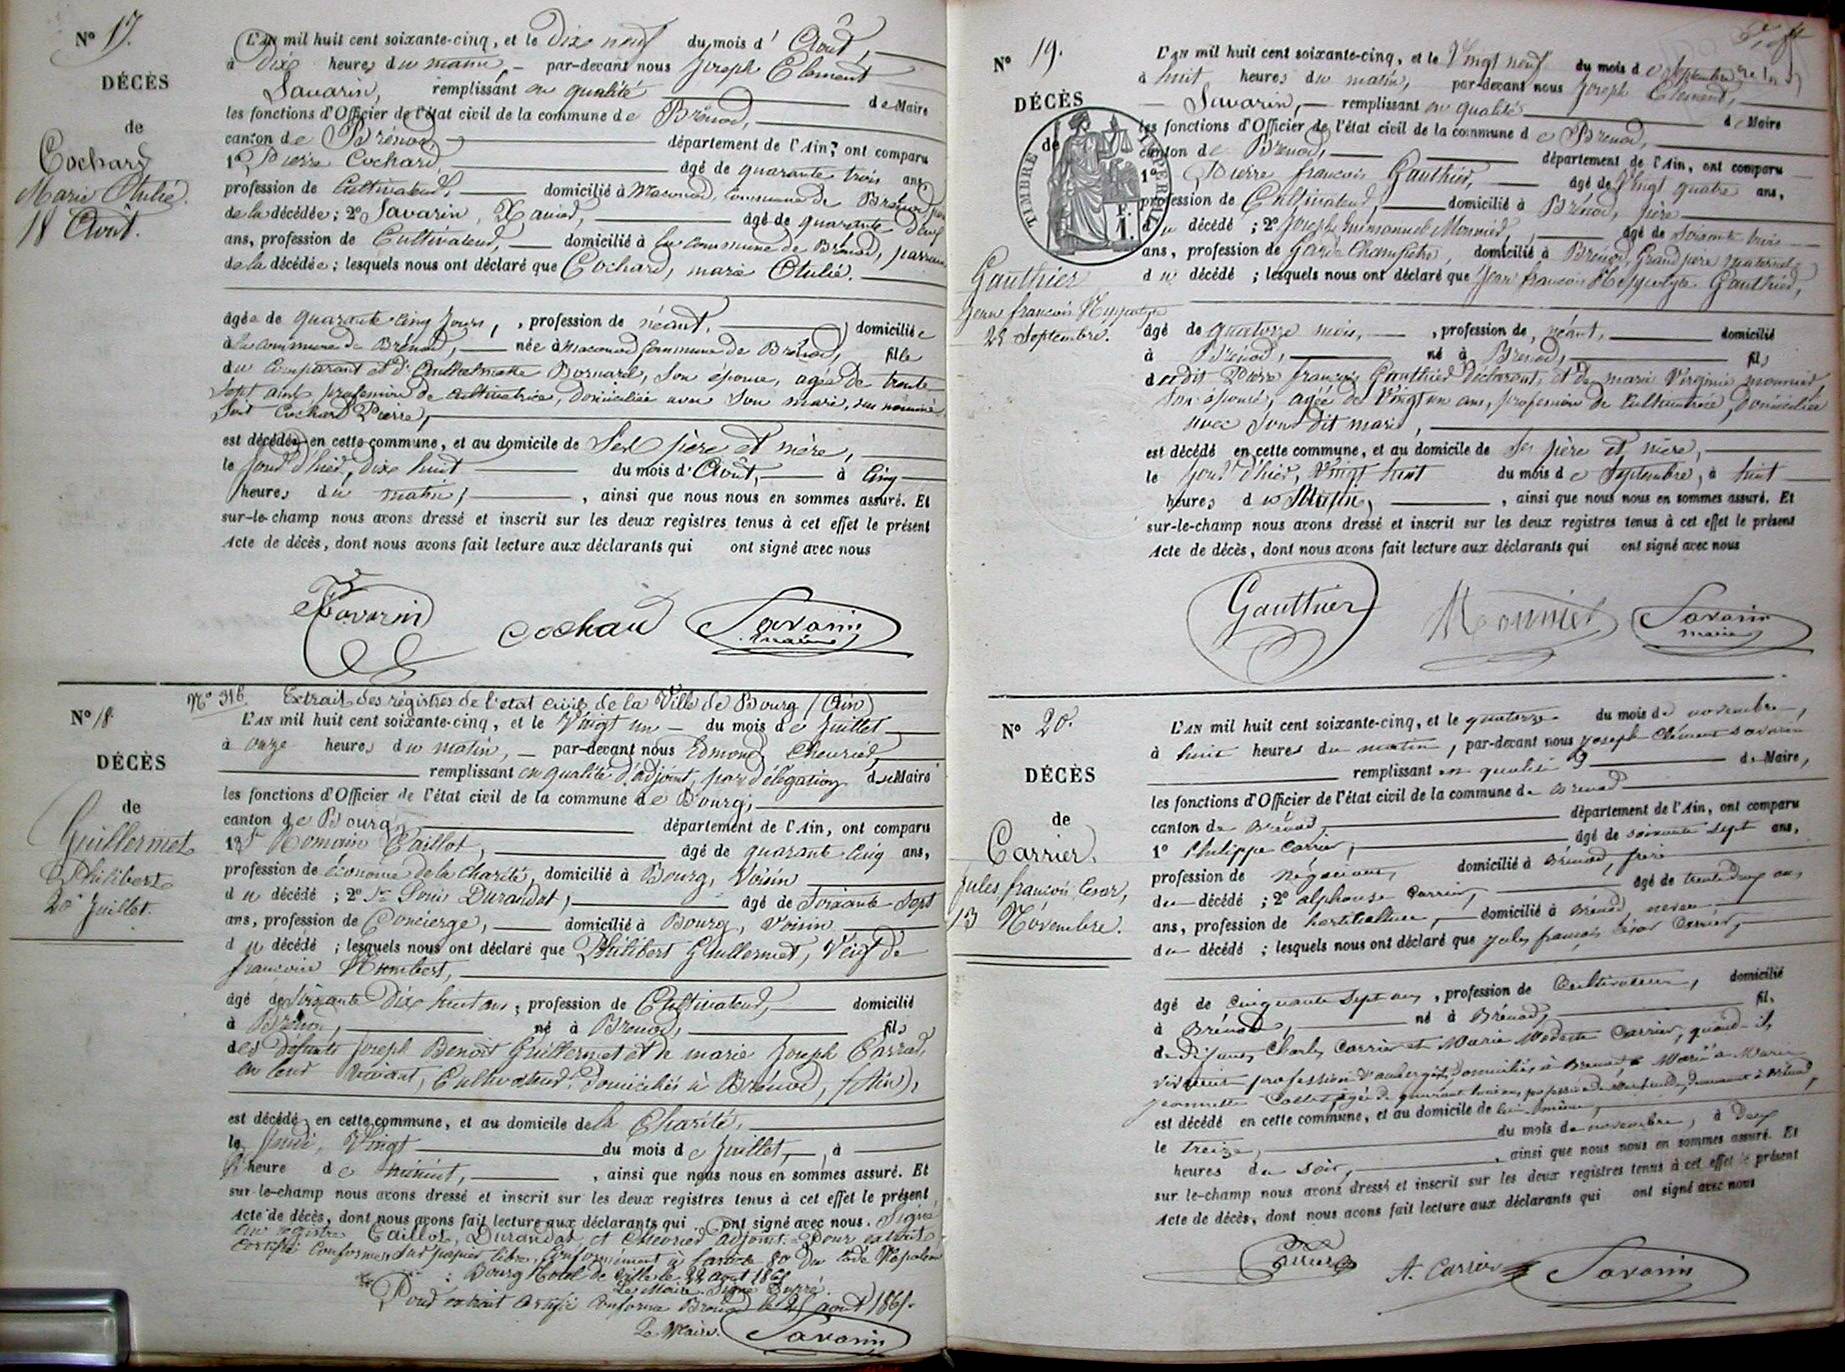 N° 17.
DÉCÈS
de
Cochard
Marie Otulie.
18 Août.
L'AN mil huit cent soixante-cinq, et le Dix neuf du mois d' Août,
à Dix heures du matin, par-devant nous Joseph Clément
Savarin, remplissant en qualité de Maire
les fonctions d'Officier de l'état civil de la commune de Brénod,
canton de Brénod département de l'Ain, ont comparu
1° Pierre Cochard âgé de quarante trois ans
profession de Cultivateur, domicilié à Macconod, commune de Brénod, père
de la décédée; 2° Savarin, Xavier, âgé de quarante neuf
ans, profession de Cultivateur, domicilié à la commune de Brénod, parrain
de la décédée; lesquels nous ont déclaré que Cochard, marie Otulie.
âgée de quarante cinq jours, profession de néant, domiciliée
à la commune de Brénod, née à Macconod commune de Brénod, fille
du Comparant et d' Bornard, son épouse, agée de trente
sept ans profession de cultivatrice, domiciliée avec son mari, sus nommé
Cochard Pierre,
est décédée en cette commune, et au domicile de Ses père et mère,
le jour d'hier, dix huit du mois d'Août, à Cinq
heures du matin, ainsi que nous nous en sommes assuré. Et
sur-le-champ nous avons dressé et inscrit sur les deux registres tenus à cet effet le présent
Acte de décès, dont nous avons fait lecture aux déclarants qui ont signé avec nous
Savarin Cochard Savarin
maire
N° 18
DÉCÈS
de
Guillermet
Philibert
20 Juillet.
N° 316. Extrait des régistres de l'etat civil de la Ville de Bourg (Ain)
L'AN mil huit cent soixante-cinq, et le Vingt un du mois de Juillet
à onze heures du matin, par-devant nous Edmond Chevrier,
remplissant en qualité d'adjoint, par délégation du Maire
les fonctions d'Officier de l'état civil de la commune de Bourg,
canton de Bourg, département de l'Ain, ont comparu
1° Sr Romain Caillot, âgé de quarante cinq ans,
profession de économe de la Charité, domicilié à Bourg, Voisin
du décédé; 2° Sr Louis Durandat, âgé de Soixante Sept
ans, profession de Concierge, domicilié à Bourg, Voisin
du décédé; lesquels nous ont déclaré que Philibert Guillermet, Veuf de
françoise Humbert,
âgé de soixante Dix huit ans, profession de Cultivateur, domicilié
à Brénod, né à Brénod, fils
des défunts Joseph Benoit Guillermet et de marie Joseph Carrad,
en leur vivant, Cultivateurs domiciliés à Brénod, (Ain),
est décédé en cette commune, et au domicile de la Charité,
le Jeudi, Vingt du mois de Juillet, à
heure de minuit, ainsi que nous nous en sommes assuré. Et
sur-le-champ nous avons dressé et inscrit sur les deux registres tenus à cet effet le présent
Acte de décès, dont nous avons fait lecture aux déclarants qui ont signé avec nous. Signé
au registre Caillot, Durandat, et Chevrier adjoint. Pour extrait
certifié conforme, Sur papier libre, Conformément à l'article 80 du Code Napoléon
Bourg Hotel de Ville le 22 août 1865
Le Maire. Signé
Pour extrait certifié conforme Brénod le 25 août 1865.
Le Maire. Savarin
N° 19.
DÉCÈS
de
TIMBRE IMPERIAL
1 F.
Gauthier
Jean francois Hyppolyte
28 Septembre.
L'AN mil huit cent soixante-cinq, et le Vingt neuf du mois de Septembre
à huit heures du matin, par-devant nous Joseph Clement,
Savarin, remplissant en qualité de Maire
les fonctions d'Officier de l'état civil de la commune de Brénod,
canton de Brénod, département de l'Ain, ont comparu
1° Pierre francois Gauthier, âgé de Vingt quatre ans,
profession de Cultivateur, domicilié à Brénod, père
du décédé; 2° Joseph Emmanuel Monnier, âgé de soixante trois
ans, profession de Garde Champêtre, domicilié à Brénod, Grand pere maternel
du décédé; lesquels nous ont déclaré que Jean francois Hyppolyte Gauthier,
âgé de quatorze mois, profession de néant, domicilié
à Brénod, né à Brénod, fils
de dit Pierre françois Gauthier déclarant, et de marie Virginie monnier
son épouse, agée de Vingt un ans, profession de Cultivatrice, domiciliée
avec son dit mari,
est décédé en cette commune, et au domicile de Ses père et mère,
le jour d'hier, Vingt huit du mois de Septembre, à huit
heures du Matin, ainsi que nous nous en sommes assuré. Et
sur-le-champ nous avons dressé et inscrit sur les deux registres tenus à cet effet le présent
Acte de décès, dont nous avons fait lecture aux déclarants qui ont signé avec nous
Gauthier Monnier Savarin
maire
N° 20.
DÉCÈS
de
Carrier.
Jules francois Cesar,
13 Novembre.
L'AN mil huit cent soixante-cinq, et le quatorze du mois de novembre,
à huit heures du matin, par-devant nous Joseph Clément Savarin
remplissant en qualité de Maire,
les fonctions d'Officier de l'état civil de la commune de Brénod
canton de Brénod département de l'Ain, ont comparu
1° Philippe Carrier, âgé de soixante sept ans,
profession de négociant, domicilié à Brénod, frère
du décédé; 2° alphonse Carrier, âgé de trente deux ans
ans, profession de horticulteur, domicilié à Brénod neveu
du décédé; lesquels nous ont déclaré que Jules françois César Carrier,
âgé de cinquante sept ans, profession de Cultivateur, domicilié
à Brénod, né à Brénod, fils
de Défunts Charles Carrier et Marie Modeste Carrier, quand ils
vivaient profession d'aubergistes domiciliés à Brénod, Marié à Marie
Jeannette Collet agée de quarant trois ans, profession de marchande, demeurant à Brénod,
est décédé en cette commune, et au domicile de lui même,
le treize, du mois de novembre, à deux
heures du soir, ainsi que nous nous en sommes assuré. Et
sur le-champ nous avons dressé et inscrit sur les deux registres tenus à cet effet le présent
Acte de décès, dont nous avons fait lecture aux déclarants qui ont signé avec nous
Carrier A. Carrier Savarin